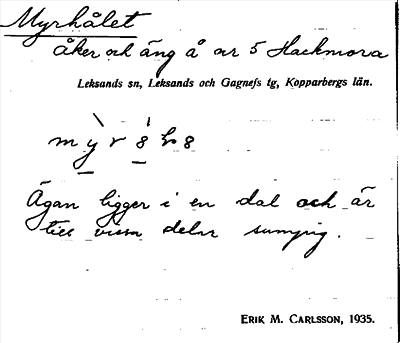 Myrhålet
åker och äng å nr 5 Hackmora
Leksands sn, Leksands och Gagnefs tg, Kopparbergs län.
Ägan ligger i en dal och är
till vissa delar sumpig.
ERIK M. CARLSSON, 1935.